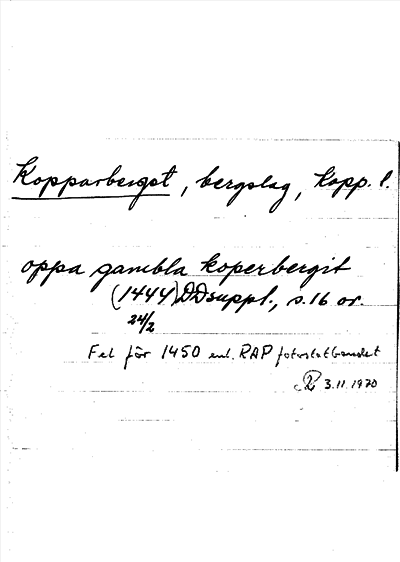 Kopparberget, bergslag, Kopp. l.
oppa gambla koperbergit
(1444) DD suppl., s. 16 or.
24/2
Fel för 1450 enl. RAP fotostatbandet
3.11.1970